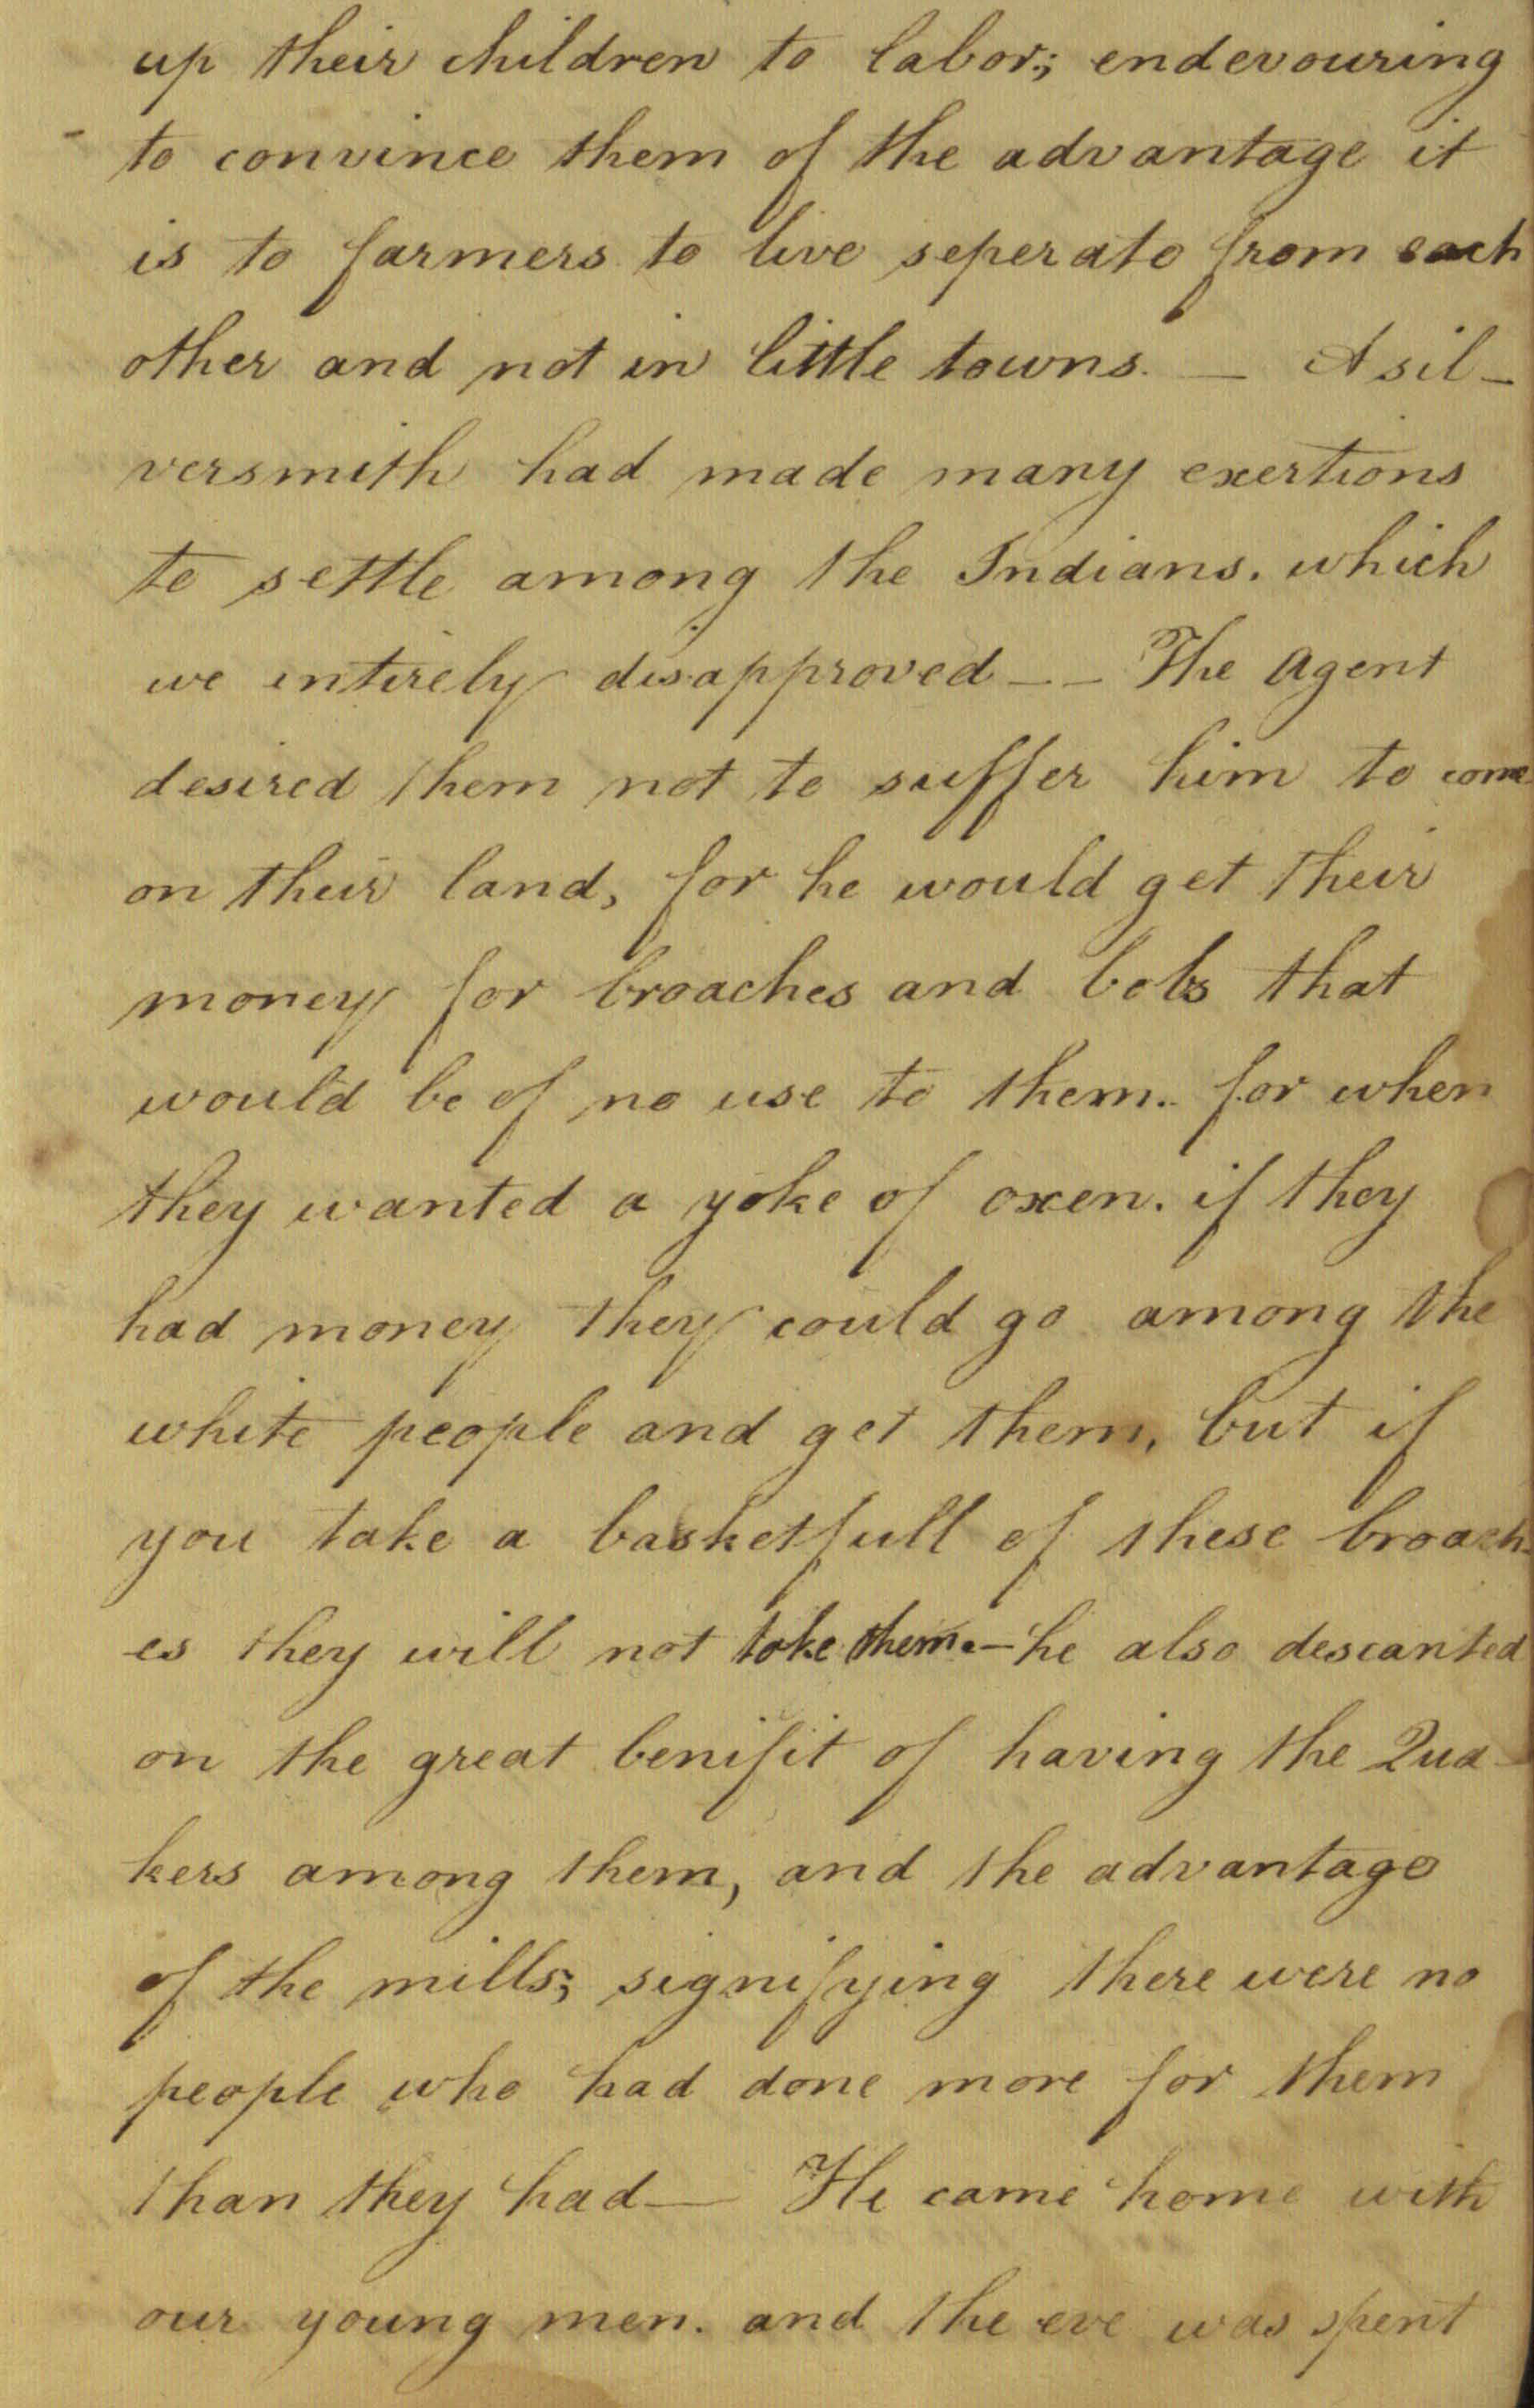 up their children to labor; endevouring
to convince them of the advantage it
is to farmers to live seperate from each
other and not in little towns. — A sil-
versmith had made many exertions
to settle among the Indians. which
we entirely disapproved — — The Agent
desired them not to suffer him to come
on their land, for he would get their
money for broaches and bobs that
would be of no use to them. for when
they wanted a yoke of oxen. if they
had money they could go among the
white people and get them, but if
you take a basketfull of these broach-
es they will not take them. — he also descanted
on the great benifit of having the Qua-
kers among them, and the advantage
of the mills; signifying there were no
people who had done more for them
than they had — He came home with
our young men. and the eve was spent